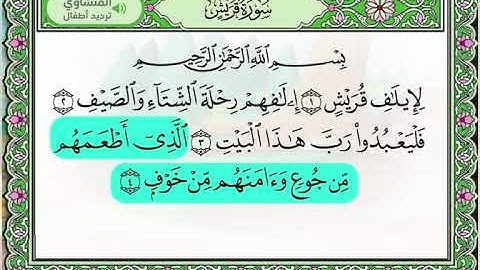 المنشاوي
ترديد أطفال
سورة قريش
بسم الله الرحمن الرحيم
لِإِيلَٰفِ قُرَيْشٍ ١ إِۦلَٰفِهِمْ رِحْلَةَ ٱلشِّتَآءِ وَٱلصَّيْفِ ٢
فَلْيَعْبُدُوا۟ رَبَّ هَٰذَا ٱلْبَيْتِ ٣ ٱلَّذِىٓ أَطْعَمَهُم
مِّن جُوعٍ وَءَامَنَهُم مِّنْ خَوْفٍۭ ٤